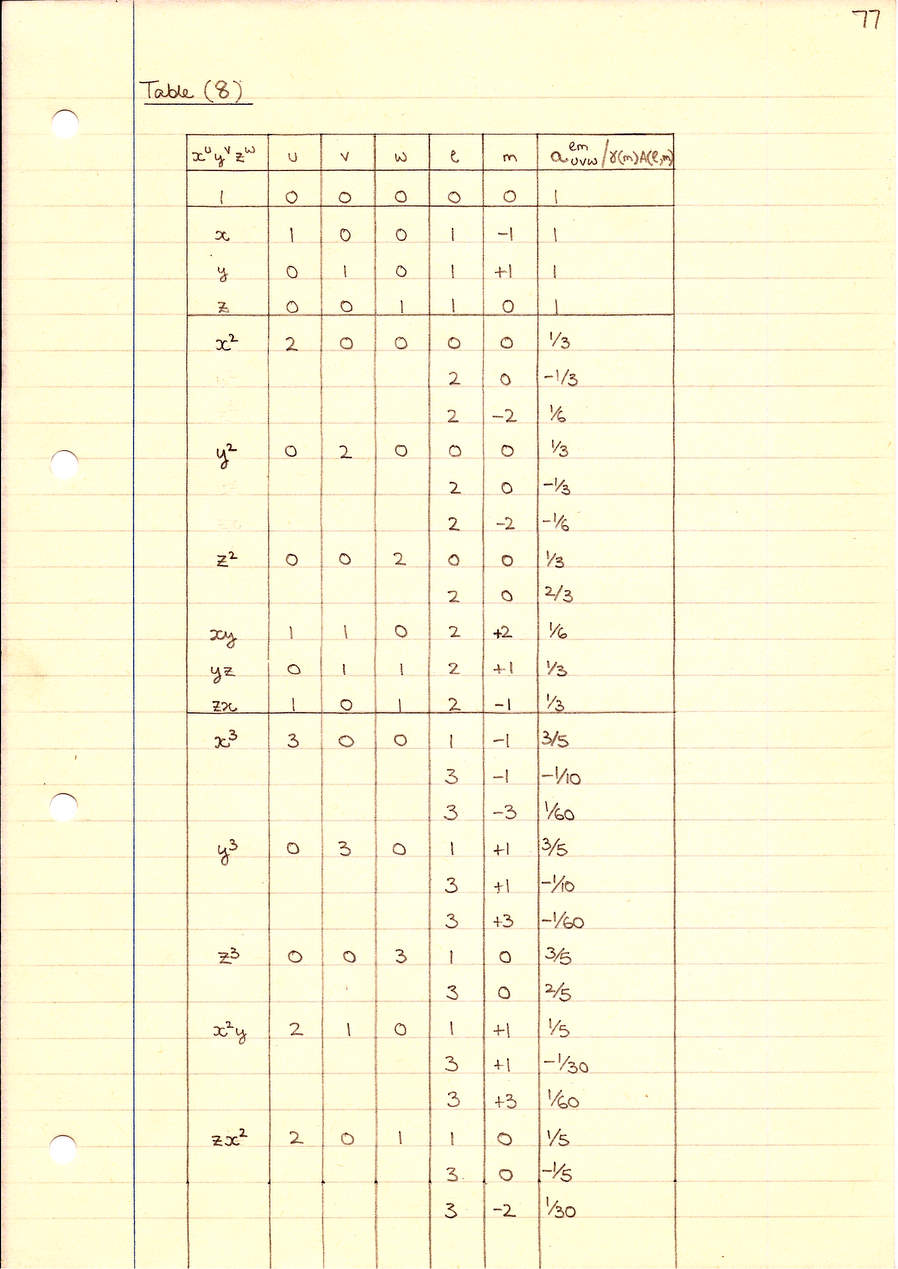 77
Table (8)
xᵘyᵛzʷ u v w ℓ m aᵘᵛʷ^ℓm/γ(m)A(ℓ,m)
1 0 0 0 0 0 1
x 1 0 0 1 -1 1
y 0 1 0 1 +1 1
z 0 0 1 1 0 1
x² 2 0 0 0 0 1/3
2 0 -1/3
2 -2 1/6
y² 0 2 0 0 0 1/3
2 0 -1/3
2 -2 -1/6
z² 0 0 2 0 0 1/3
2 0 2/3
xy 1 1 0 2 +2 1/6
yz 0 1 1 2 +1 1/3
zx 1 0 1 2 -1 1/3
x³ 3 0 0 1 -1 3/5
3 -1 -1/10
3 -3 1/60
y³ 0 3 0 1 +1 3/5
3 +1 -1/10
3 +3 -1/60
z³ 0 0 3 1 0 3/5
3 0 2/5
x²y 2 1 0 1 +1 1/5
3 +1 -1/30
3 +3 1/60
zx² 2 0 1 1 0 1/5
3 0 -1/5
3 -2 1/30